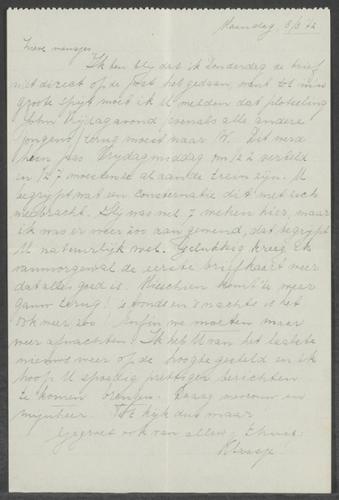 Maandag, 8/6 42
Lieve mensjes
Ik ben blij dat ik Donderdag de brief
niet direct op de post heb gedaan, want tot mijn
groote spijt moet ik U melden dat plotseling
John Vrijdagavond (evenals alle andere
jongens) terug moest naar W. Dit werd
hem pas Vrijdagmiddag om ½ 2 verteld
en ½ 7 moesten ze al aan de trein zijn. U
begrijpt wat een consternatie dit met zich
meebracht. Hij was net 7 weken hier, maar
ik was er weer zoo aan gewend, dat begrijpt
U natuurlijk wel. Gelukkig kreeg ik
vanmorgen al de eerste briefkaart weer
dat alles goed is. Misschien komt ie weer
gauw terug! 's avonds en 's nachts is het
ook meer zoo! Enfin we moeten maar
weer afwachten! Ik heb U van het laatste
nieuws weer op de hoogte gesteld en ik
hoop U spoedig prettiger berichten
te komen brengen. Daag mevrouw en
mijnheer. Tot kijk dus maar!
Gegroet ook van allen, Uw
Klaasje!